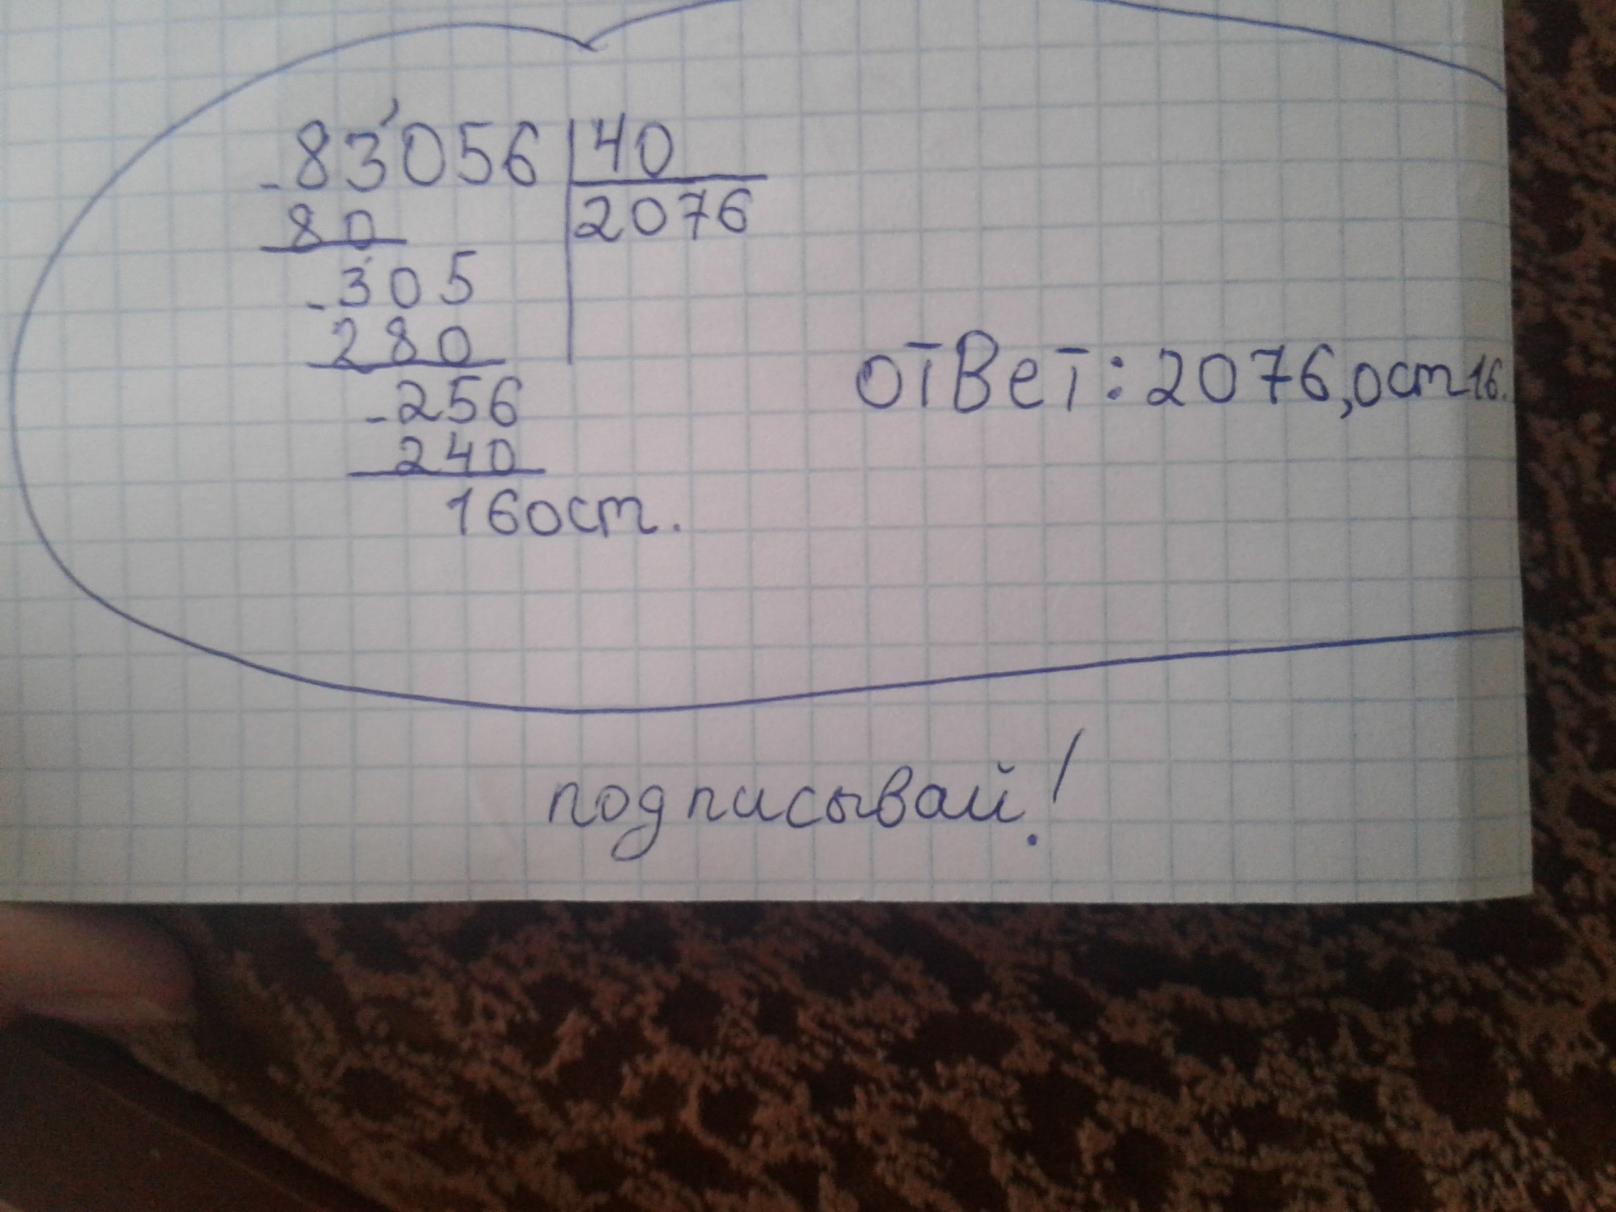 83056 | 40
80 | 2076
- 305
280
- 256
240
16 ост.
ответ: 2076, ост 16.
подписывай!